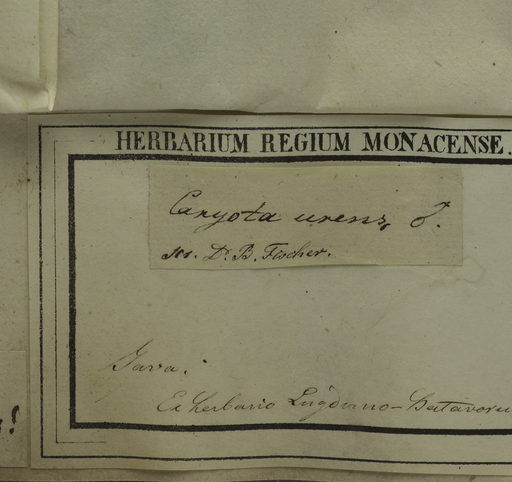 HERBARIUM REGIUM MONACENSE.
Caryota urens, ♂.
Dr. B. Fischer.
Java.
Ex herbario Lugduno-Batavorum
!